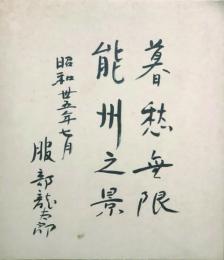 暮愁無限
能州之景
昭和卅五年七月
服部龍太郎